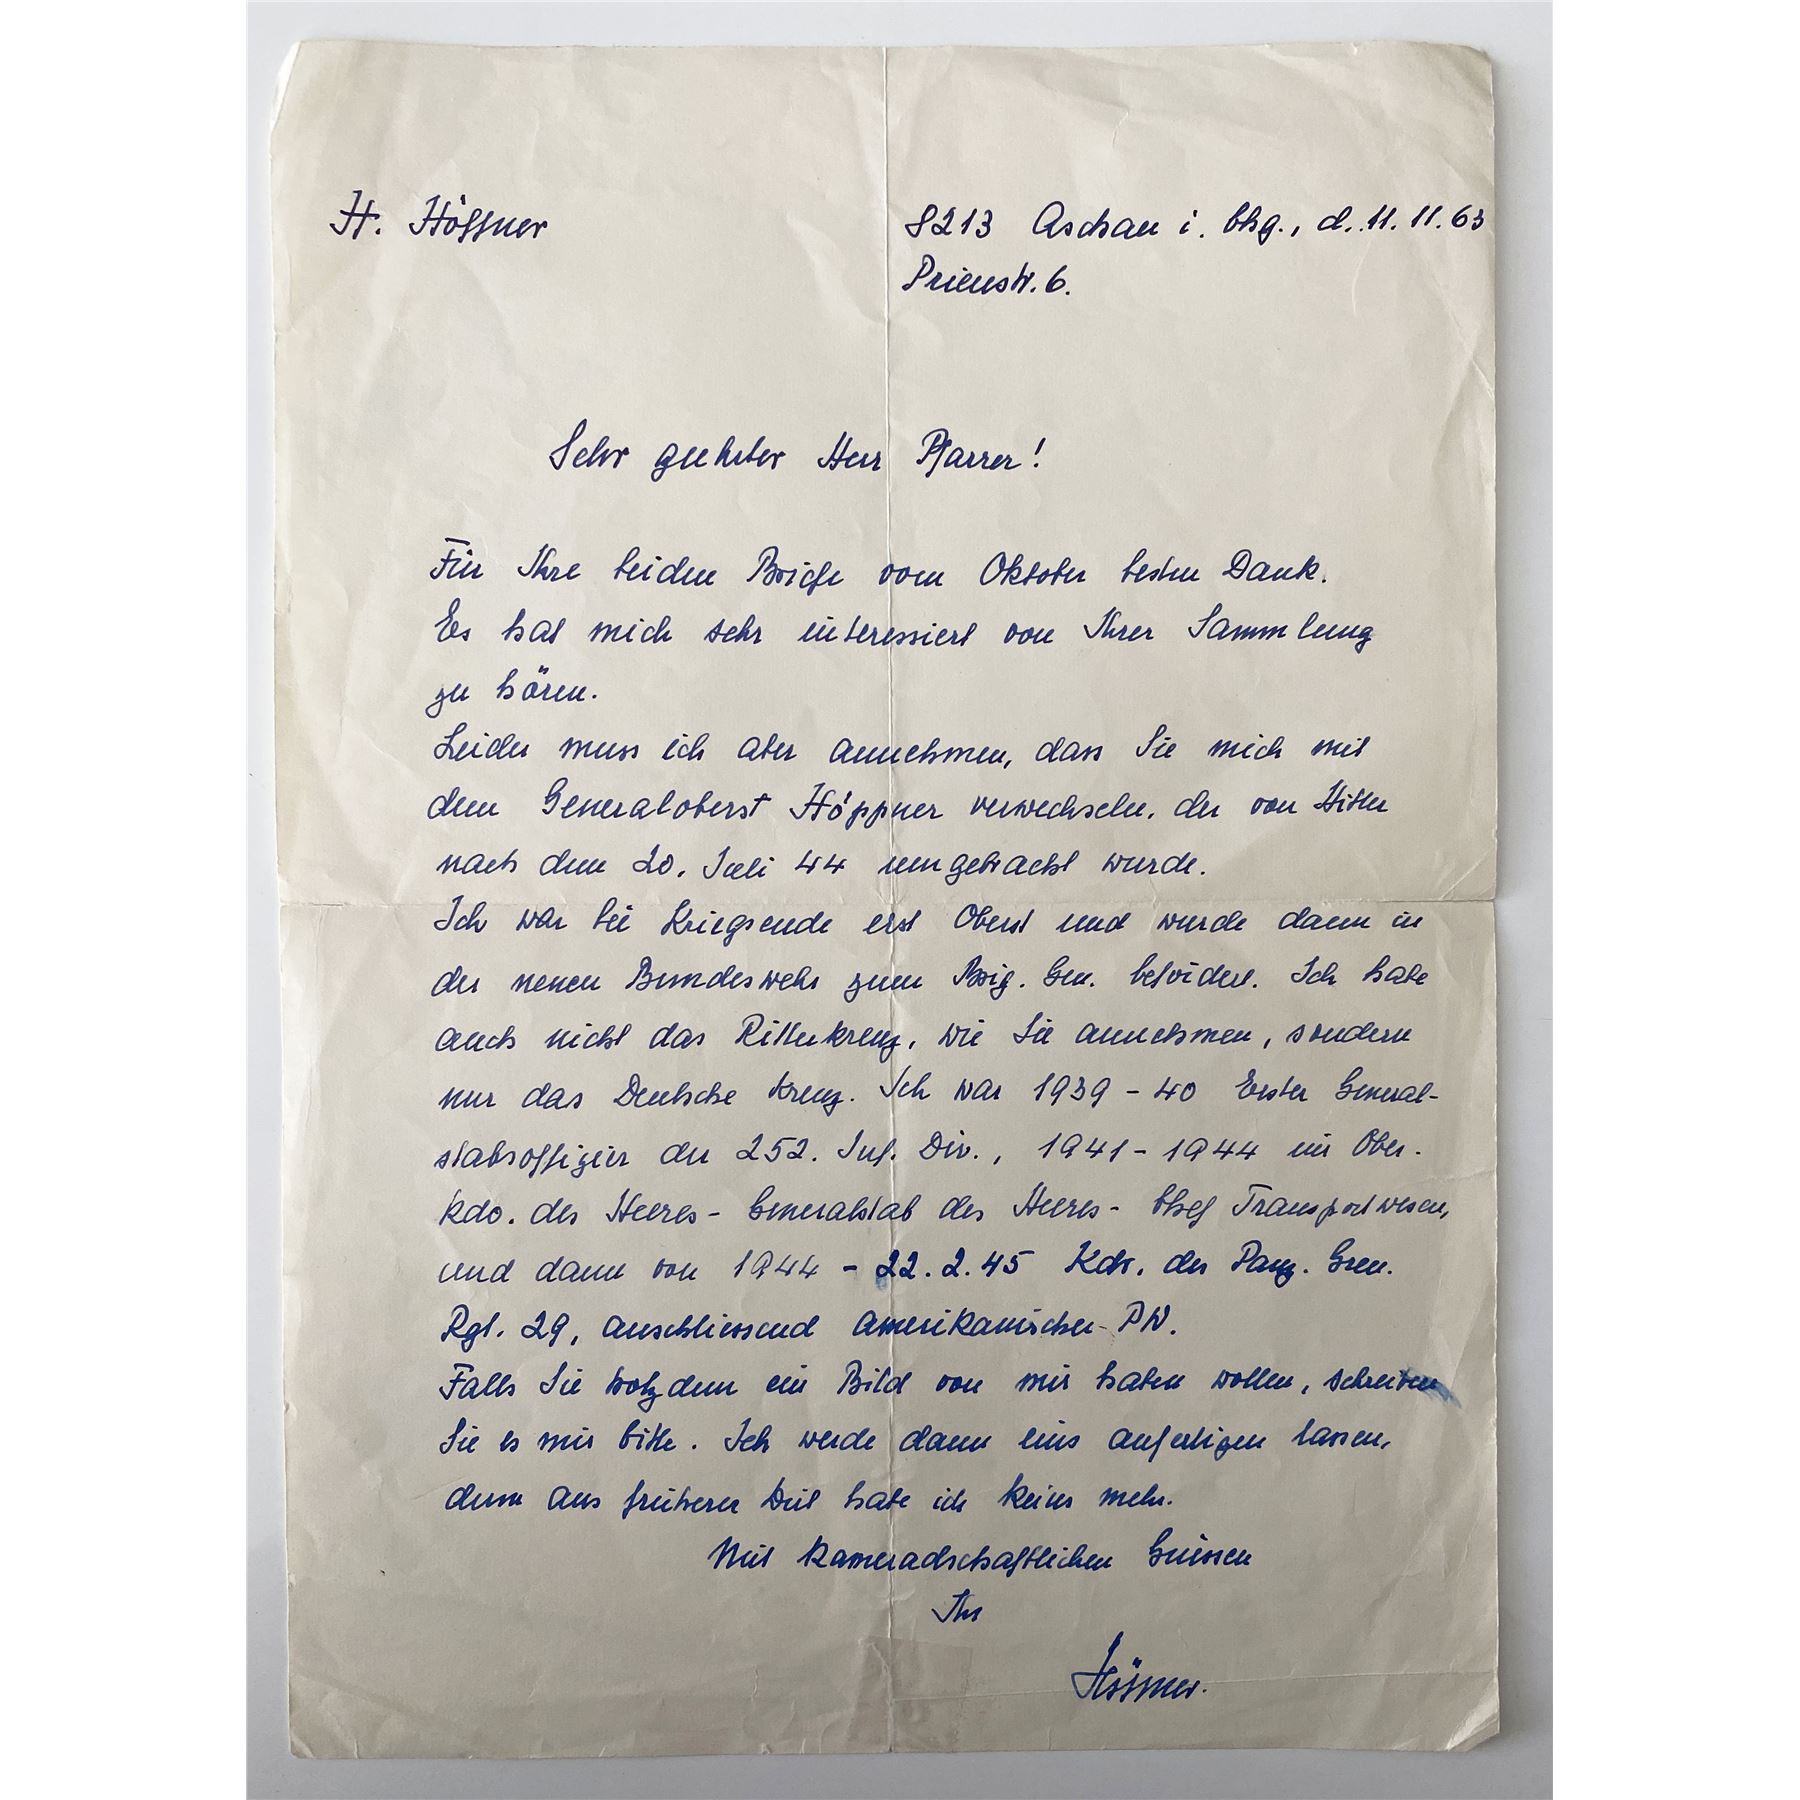 H. Höffner
8213 Aschau i. Chg., d. 11. 11. 63
Prienstr. 6.
Sehr geehrter Herr Pfarrer!
Für Ihre beiden Briefe vom Oktober besten Dank.
Es hat mich sehr interessiert von Ihrer Sammlung
zu hören.
Leider muss ich aber annehmen, dass Sie mich mit
dem Generaloberst Höppner verwechseln, der von Hitler
nach dem 20. Juli 44 umgebracht wurde.
Ich war bei Kriegsende erst Oberst und wurde dann in
der neuen Bundeswehr zum Brig. Gen. befördert. Ich habe
auch nicht das Ritterkreuz, wie Sie annehmen, sondern
nur das Deutsche Kreuz. Ich war 1939 - 40 Erster General-
stabsoffizier der 252. Inf. Div., 1941 - 1944 im Ober-
kdo. des Heeres - Generalstab des Heeres - Chef Transportwesen,
und dann von 1944 - 22. 2. 45 Kdr. des Panz. Gren.
Rgt. 29, anschliessend amerikanischer PW.
Falls Sie trotzdem ein Bild von mir haben wollen, schreiben
Sie es mir bitte. Ich werde dann eins anfertigen lassen,
denn aus früherer Zeit habe ich keins mehr.
Mit kameradschaftlichen Grüssen
Ihr
Höffner.